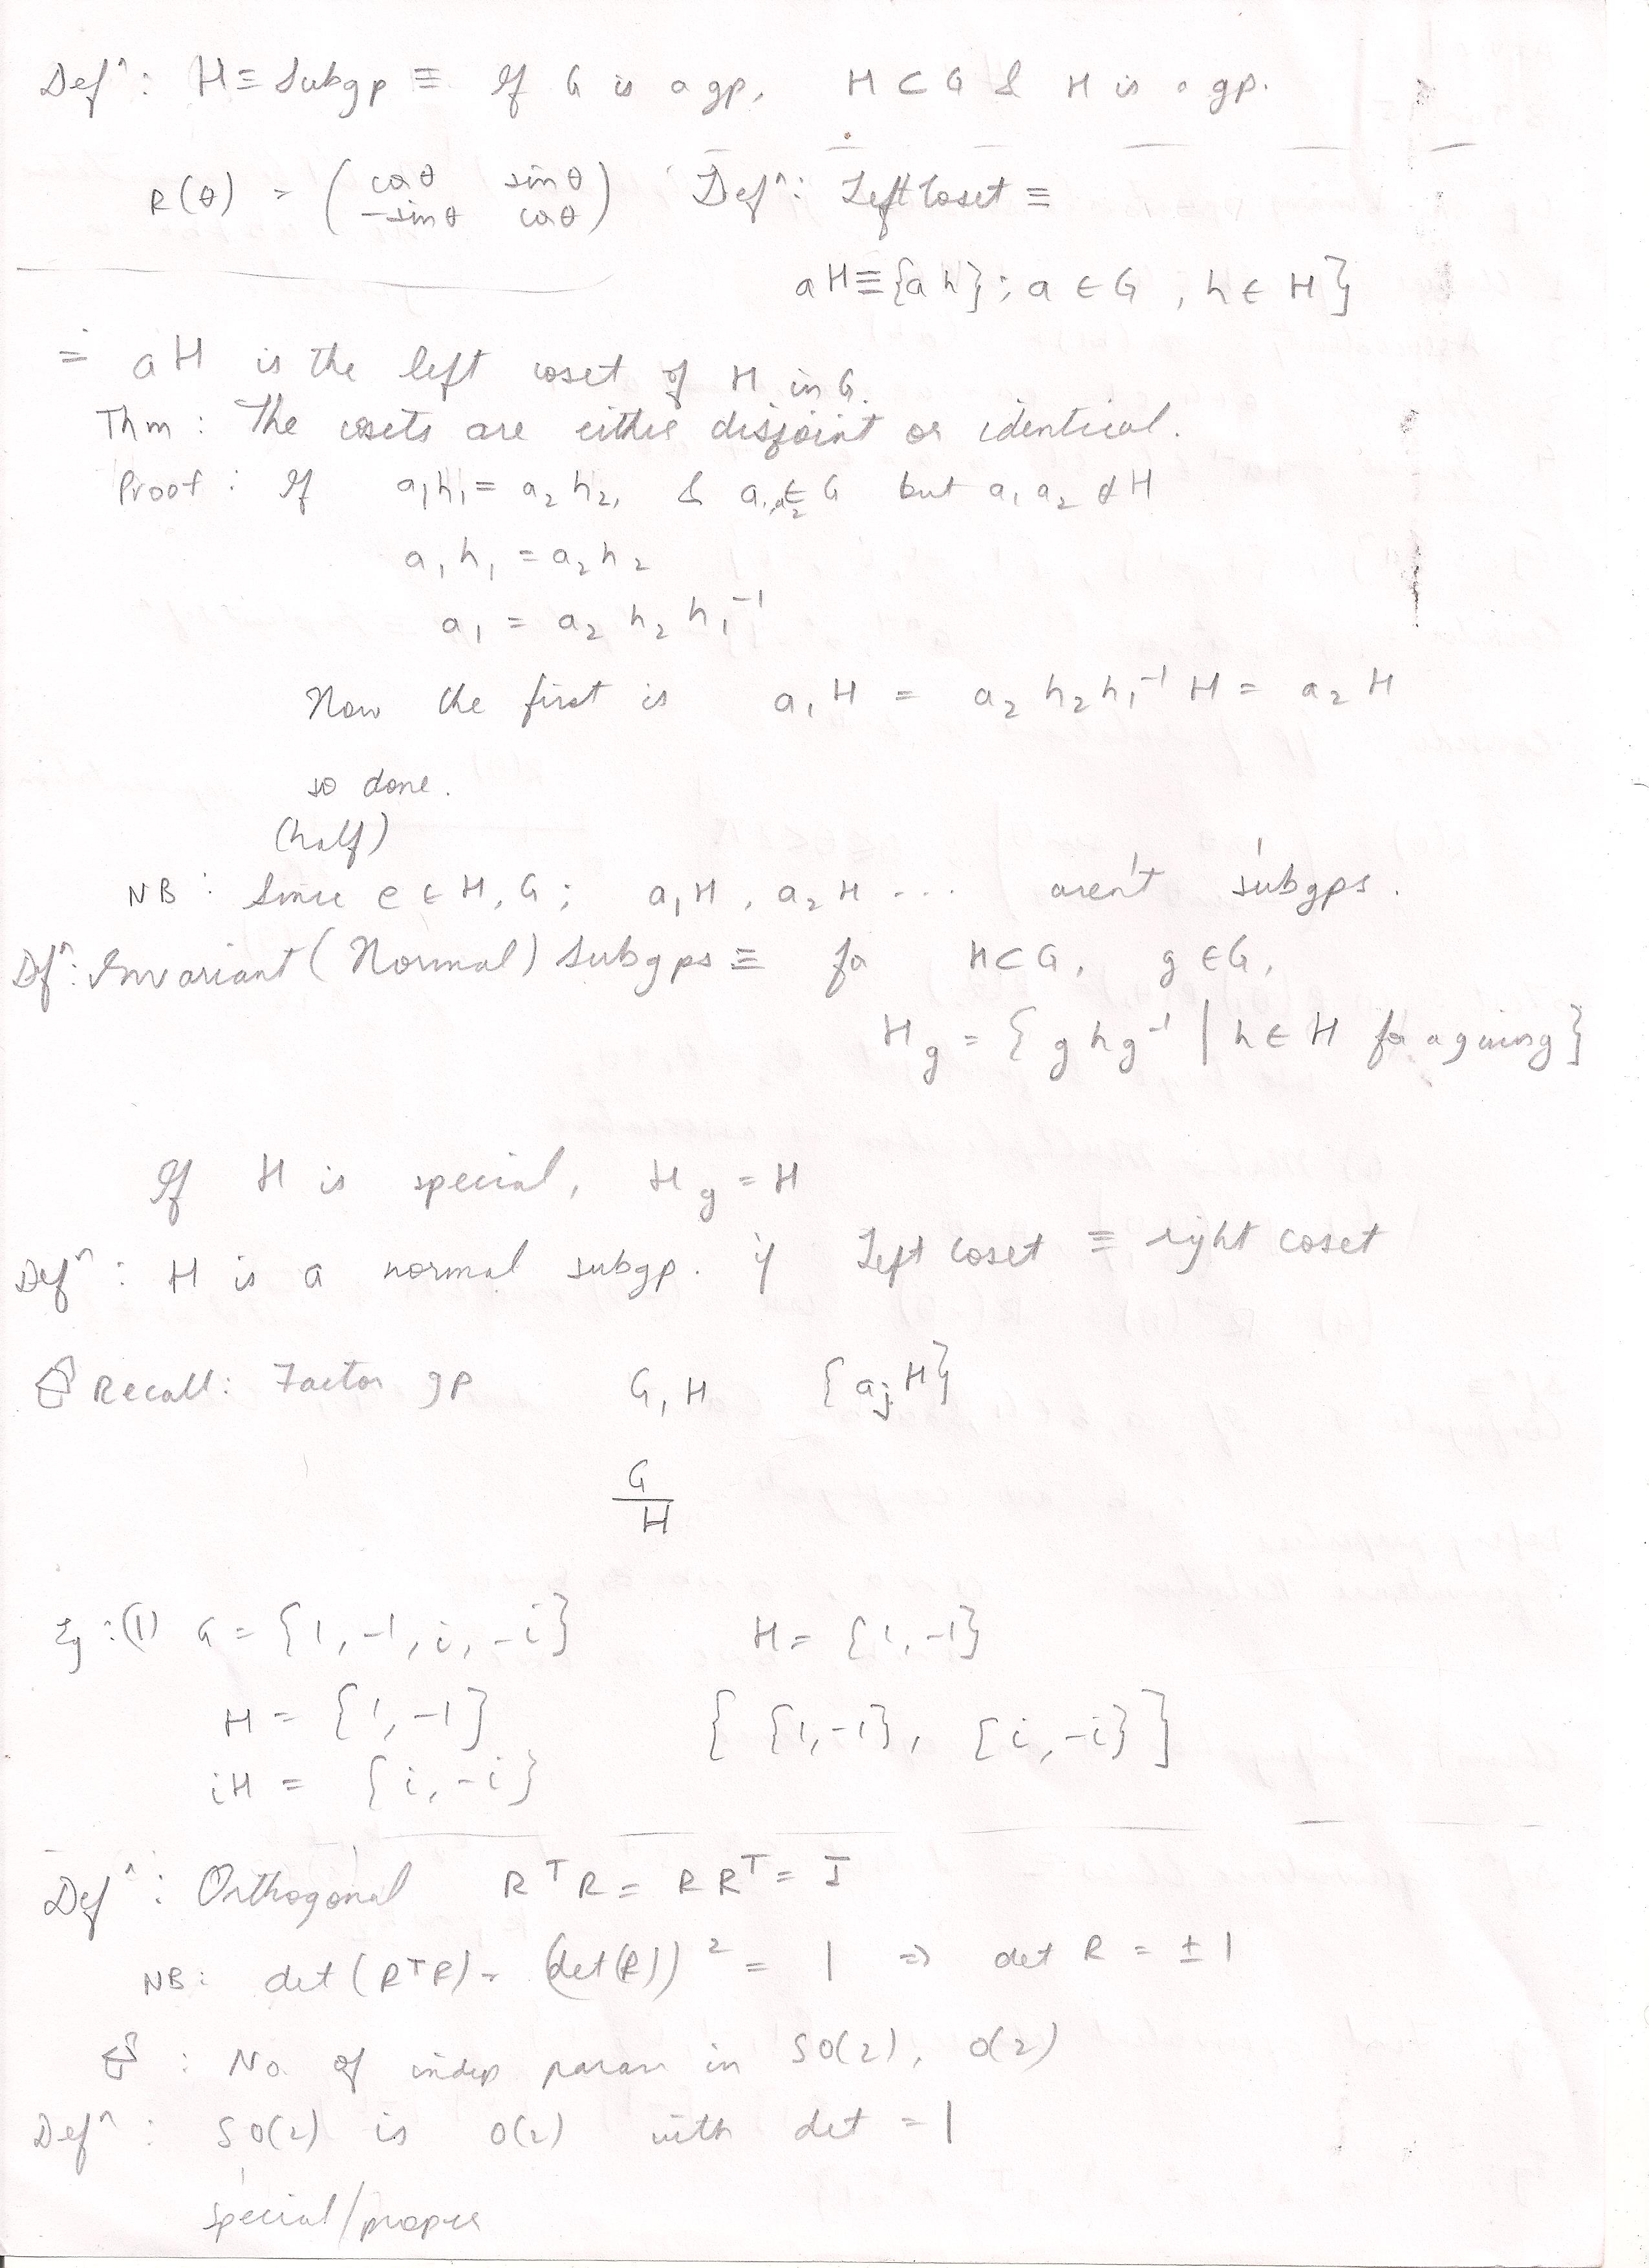 Defⁿ: H ≡ Subgp ≡ If G is a gp, H ⊂ G & H is a gp.
R(θ) = ( cosθ sinθ
-sinθ cosθ )
Defⁿ: Left Coset ≡
aH ≡ {ah}; a ∈ G, h ∈ H}
= aH is the left coset of H in G.
Thm: The cosets are either disjoint or identical.
Proof: If a₁h₁ = a₂h₂, & a₁,a₂ ∈ G but a₁ a₂ ∉ H
a₁h₁ = a₂h₂
a₁ = a₂ h₂ h₁⁻¹
Now the first is a₁H = a₂ h₂h₁⁻¹ H = a₂ H
so done.
(half)
NB: Since e ∈ H, G; a₁H, a₂H ... aren't subgps.
Dfⁿ: Invariant (Normal) Subgps ≡ for H⊂G, g ∈ G,
H_g = { g h g⁻¹ | h ∈ H for a given g}
If H is special, H_g = H
Defⁿ: H is a normal subgp. if Left Coset ≡ right coset
Recall: Factor gp G, H {a_j H}
G
H
Eg: (1) G = {1, -1, i, -i} H = {1, -1}
H = {1, -1} { {1,-1}, {i,-i} }
iH = {i, -i}
Defⁿ: Orthogonal RᵀR = RRᵀ = I
NB: det(RᵀR) = (det(R))² = 1 ⇒ det R = ±1
: No. of indep param in SO(2), O(2)
Defⁿ: SO(2) is O(2) with det = 1
special/proper